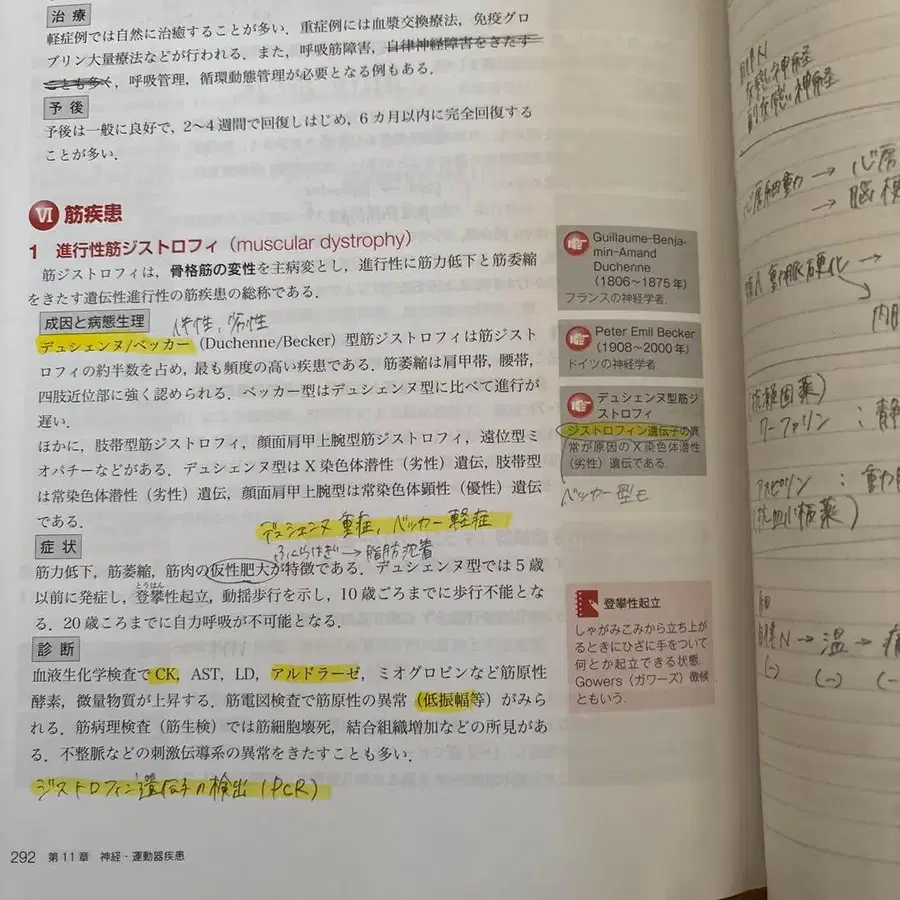 治療
軽症例では自然に治癒することが多い.重症例には血漿交換療法,免疫グロ
ブリン大量療法などが行われる.また,呼吸筋障害,自律神経障害をきたす
ことも多く,呼吸管理,循環動態管理が必要となる例もある.
予後
予後は一般に良好で,2〜4週間で回復しはじめ,6カ月以内に完全回復する
ことが多い.
VI 筋疾患
1 進行性筋ジストロフィ(muscular dystrophy)
筋ジストロフィは,骨格筋の変性を主病変とし,進行性に筋力低下と筋萎縮
をきたす遺伝性進行性の筋疾患の総称である.
成因と病態生理 伴性,劣性
デュシェンヌ/ベッカー(Duchenne/Becker)型筋ジストロフィは筋ジスト
ロフィの約半数を占め,最も頻度の高い疾患である.筋萎縮は肩甲帯,腰帯,
四肢近位部に強く認められる.ベッカー型はデュシェンヌ型に比べて進行が
遅い.
ほかに,肢帯型筋ジストロフィ,顔面肩甲上腕型筋ジストロフィ,遠位型ミ
オパチーなどがある.デュシェンヌ型はX染色体潜性(劣性)遺伝,肢帯型
は常染色体潜性(劣性)遺伝,顔面肩甲上腕型は常染色体顕性(優性)遺伝
である.
デュシェンヌ 重症,ベッカー 軽症
ふくらはぎ→脂肪沈着
症状
筋力低下,筋萎縮,筋肉の仮性肥大が特徴である.デュシェンヌ型では5歳
とうはん
以前に発症し,登攀性起立,動揺歩行を示し,10歳ごろまでに歩行不能とな
る.20歳ころまでに自力呼吸が不可能となる.
診断
血液生化学検査でCK,AST,LD,アルドラーゼ,ミオグロビンなど筋原性
酵素,微量物質が上昇する.筋電図検査で筋原性の異常(低振幅等)がみら
れる.筋病理検査(筋生検)では筋細胞壊死,結合組織増加などの所見があ
る.不整脈などの刺激伝導系の異常をきたすことも多い.
ジストロフィン遺伝子の検出(PCR)
292 第11章 神経・運動器疾患
Guillaume-Benja-
min-Amand
Duchenne
(1806〜1875年)
フランスの神経学者.
Peter Emil Becker
(1908〜2000年)
ドイツの神経学者.
デュシェンヌ型筋ジ
ストロフィ
ジストロフィン遺伝子の異
常が原因のX染色体潜性
(劣性)遺伝である.
ベッカー型も
登攀性起立
しゃがみこみから立ち上が
るときにひざに手をついて
何とか起立できる状態.
Gowers(ガワーズ)徴候
ともいう.
交感神経
副交感神経
心房細動 → 心房
→ 脳梗
動脈硬化 →
内
(抗凝固薬)
ワーファリン : 静
アスピリン : 動
(抗血小板薬)
N → 温 → 痛
(-) (-) (-